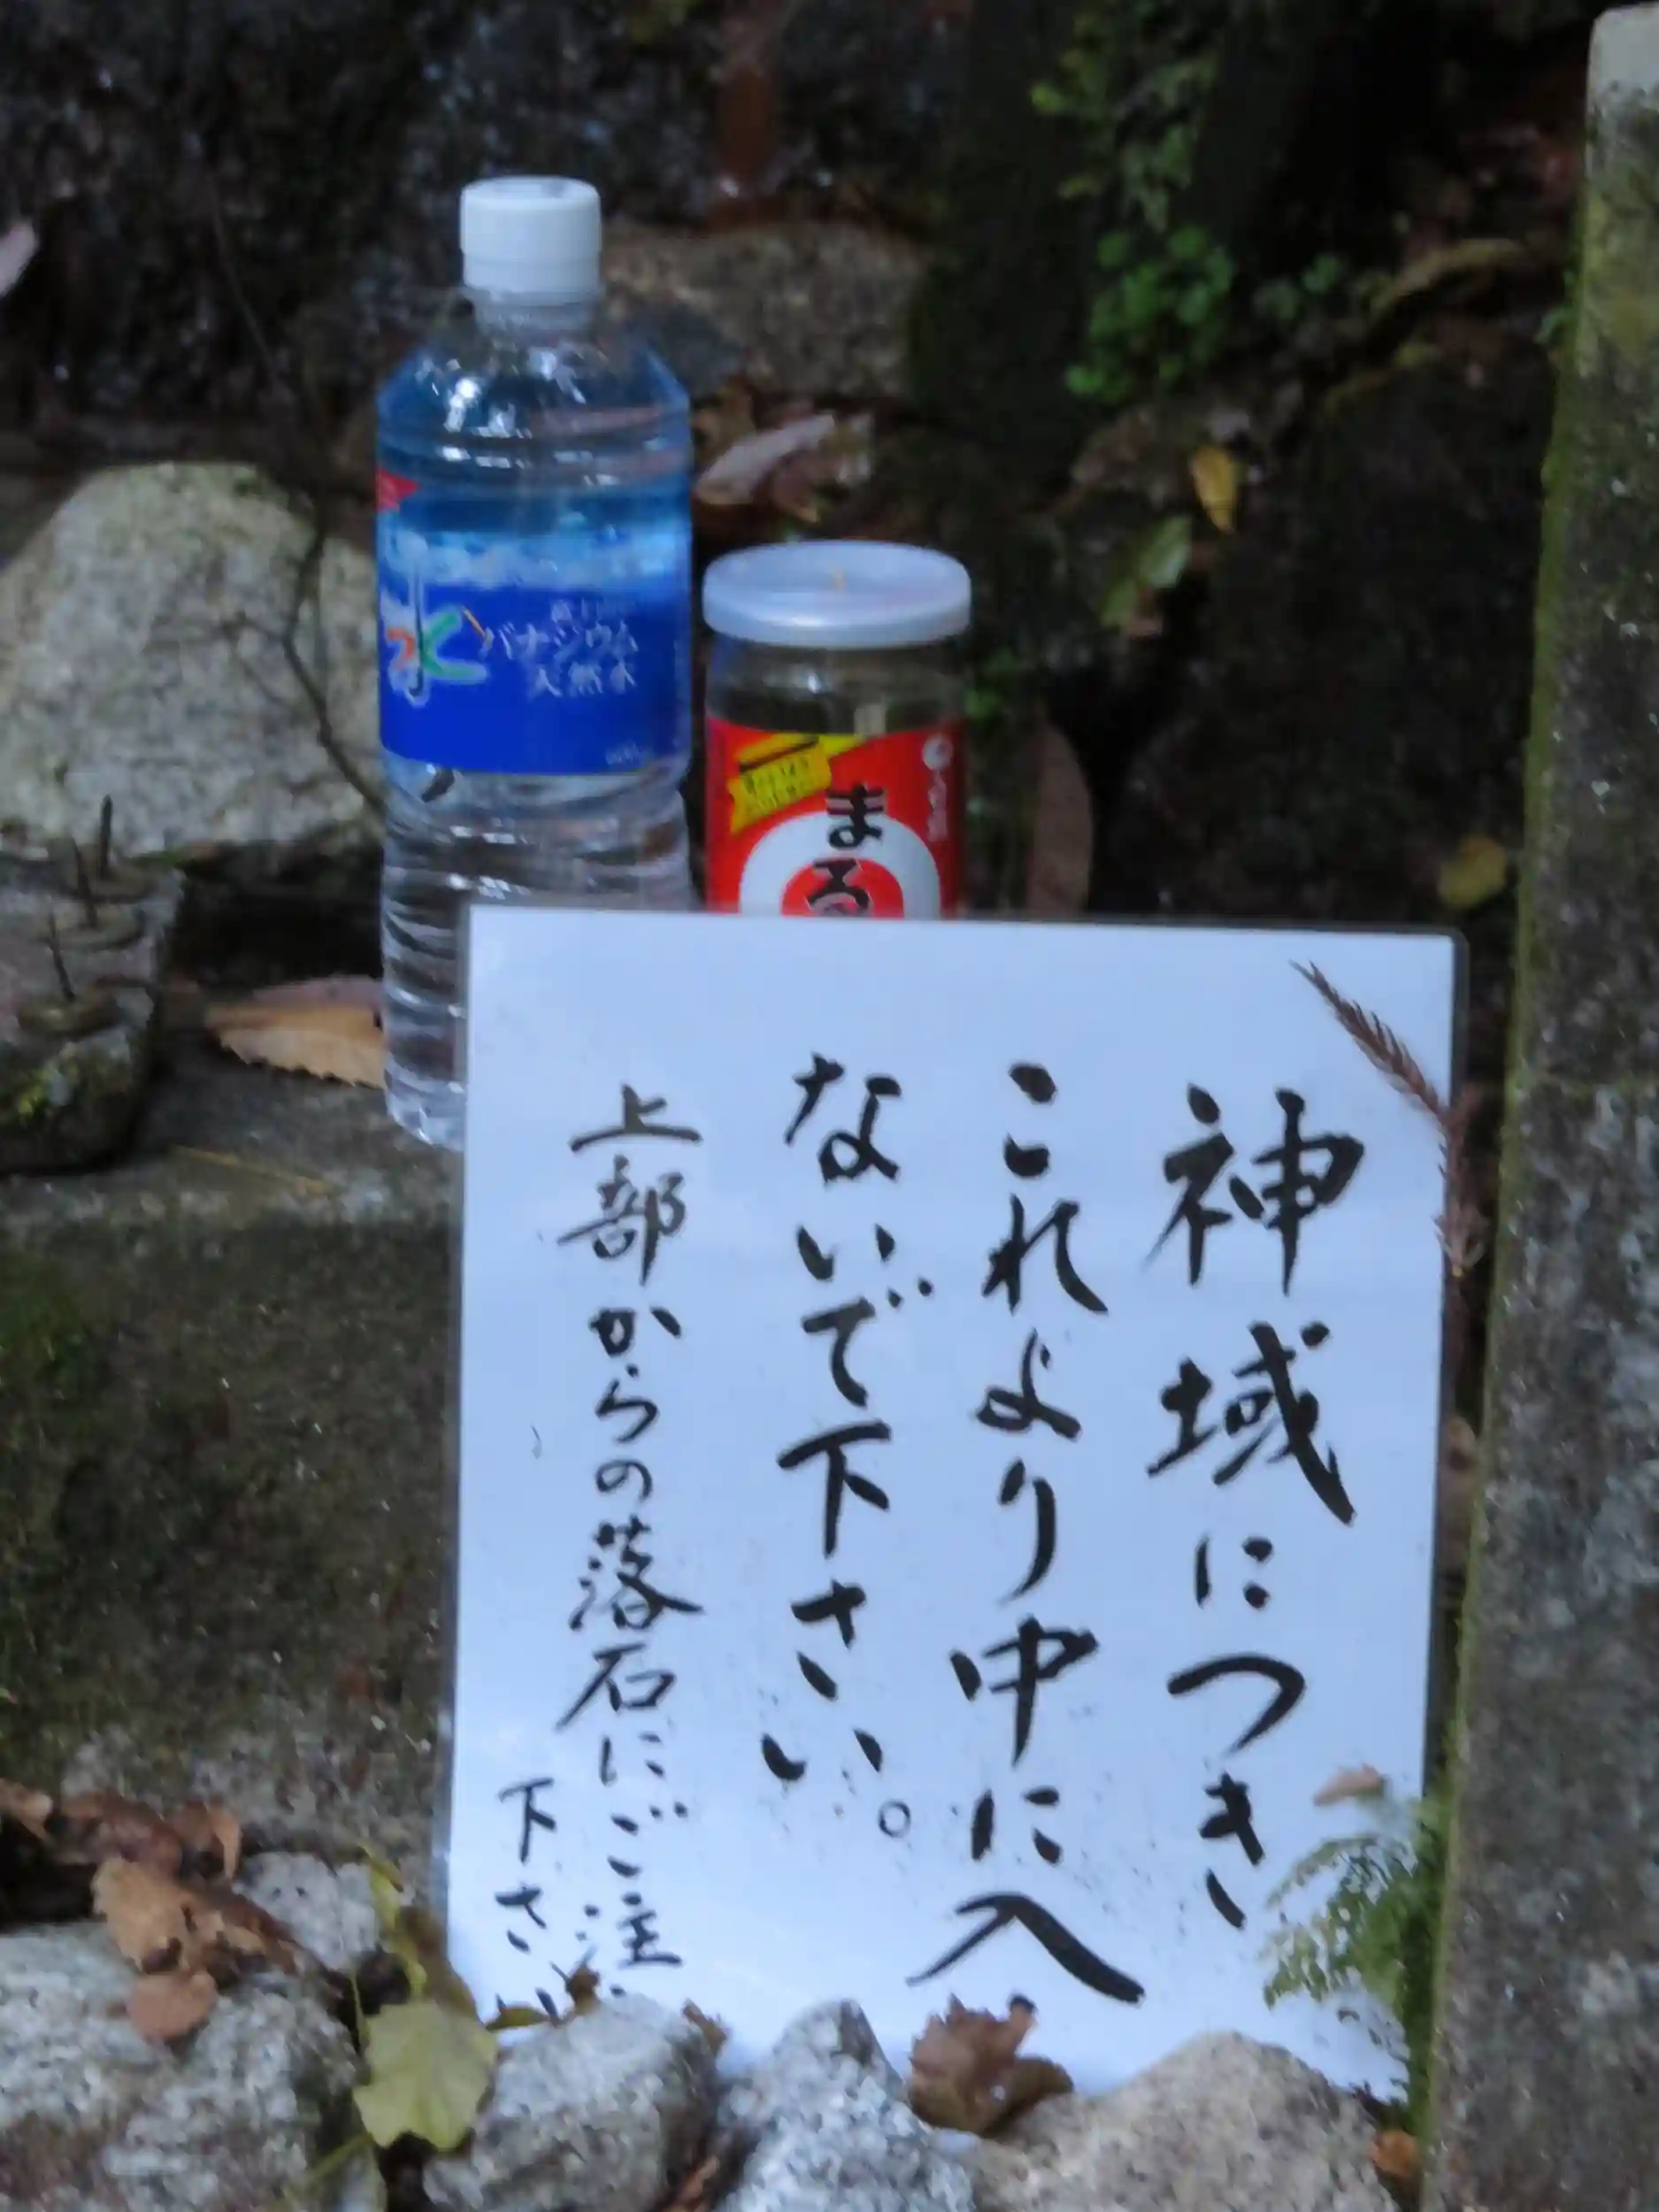 神域につき
これより中に入
ないで下さい。
上部からの落石にご注
下さい
水
バナジウム
天然水
まる